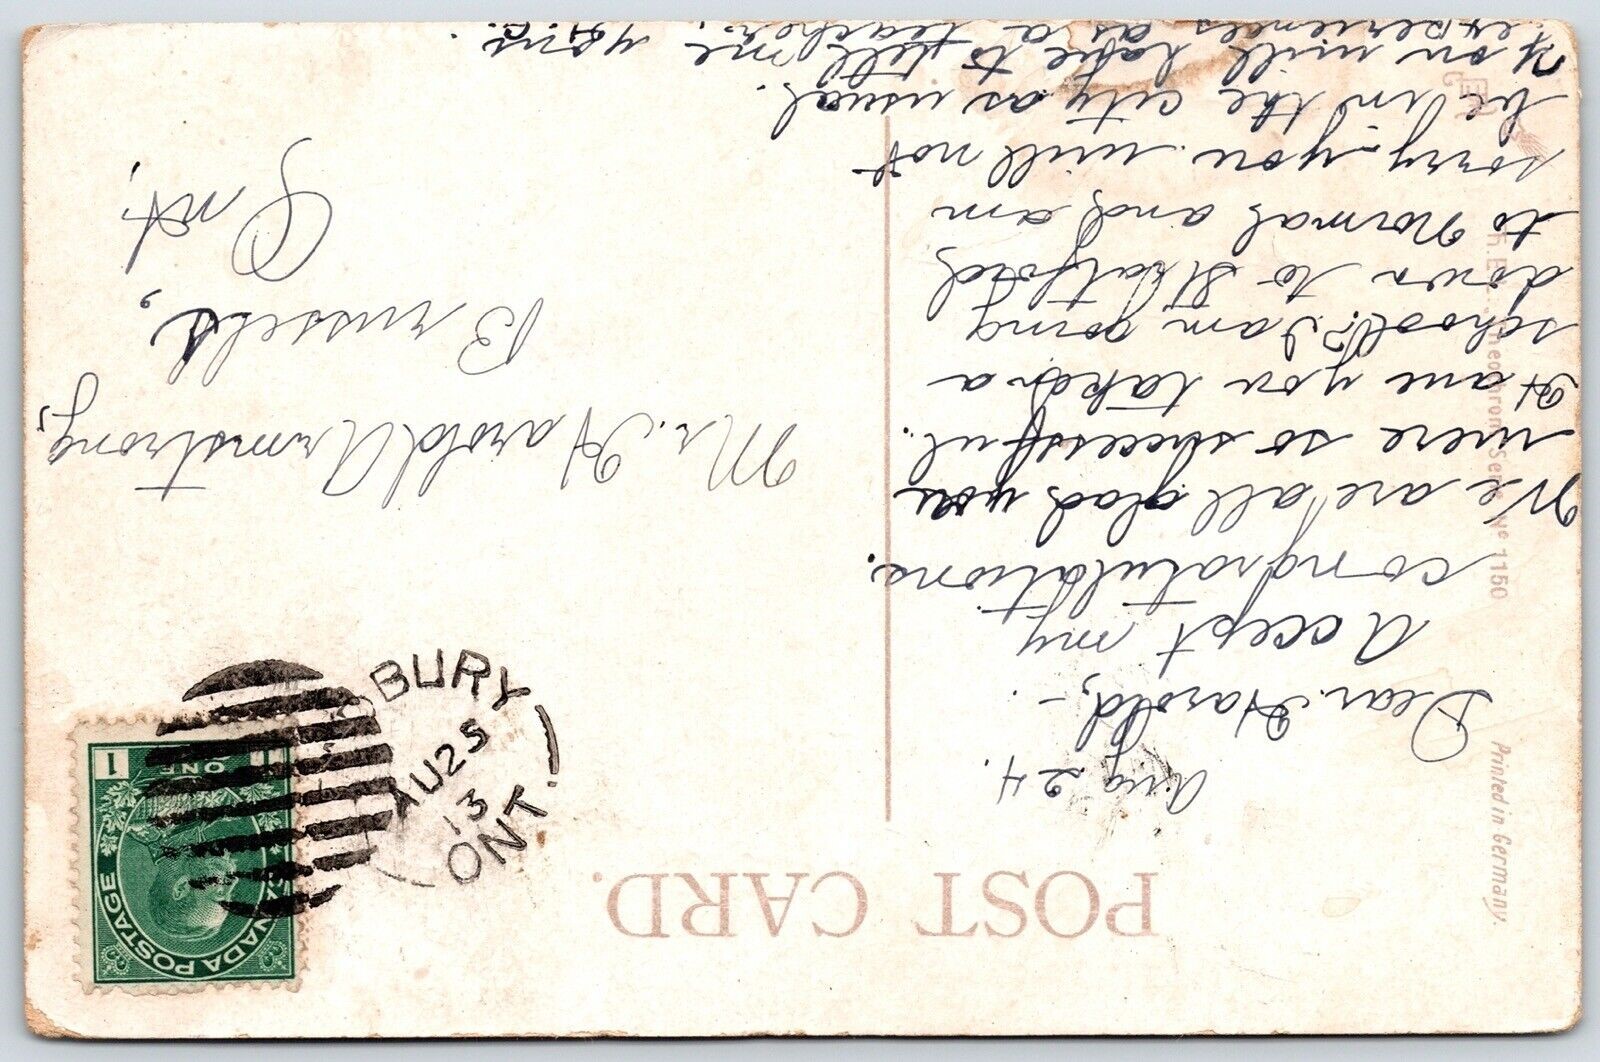 POST CARD.
Aug 24.
Dear Harold,-
Accept my
congratulations.
We are all glad you
were so successful.
Have you taken a
school? I am going
down to Stratford
to Normal and am
sorry you will not
be in the city as usual.
You will have to tell me your
experiences as a teacher.
Mr. Harold Armstrong,
Brussels,
Ont.
BURY
AU 25
13
ONT.
CANADA POSTAGE
1 ONE 1
Printed in Germany.
Theochrom Serie Nº 1150